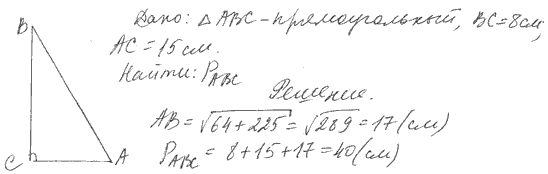 Дано: △ ABC – прямоугольный, BC = 8 см,
AC = 15 см.
Найти: P_ABC
Решение.
AB = √64 + 225 = √289 = 17 (см)
P_ABC = 8 + 15 + 17 = 40 (см)
B
C
A